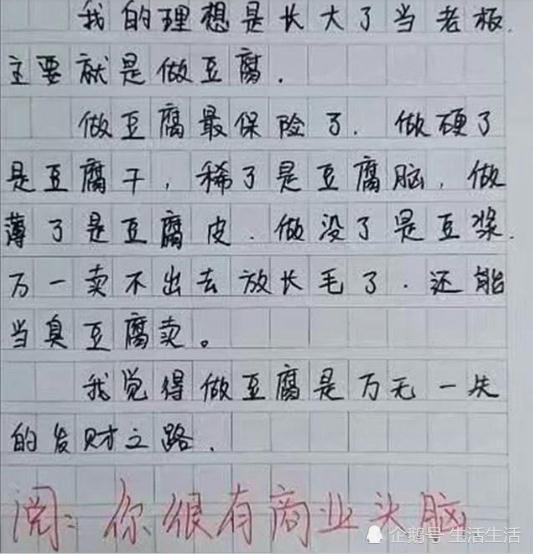 我的理想是长大了当老板.
主要就是做豆腐.
做豆腐最保险了.做硬了
是豆腐干,稀了是豆腐脑,做
薄了是豆腐皮.做没了是豆浆.
万一卖不出去放长毛了.还能
当臭豆腐卖。
我觉得做豆腐是万无一失
的发财之路.
阅:你很有商业头脑
企鹅号 生活生活